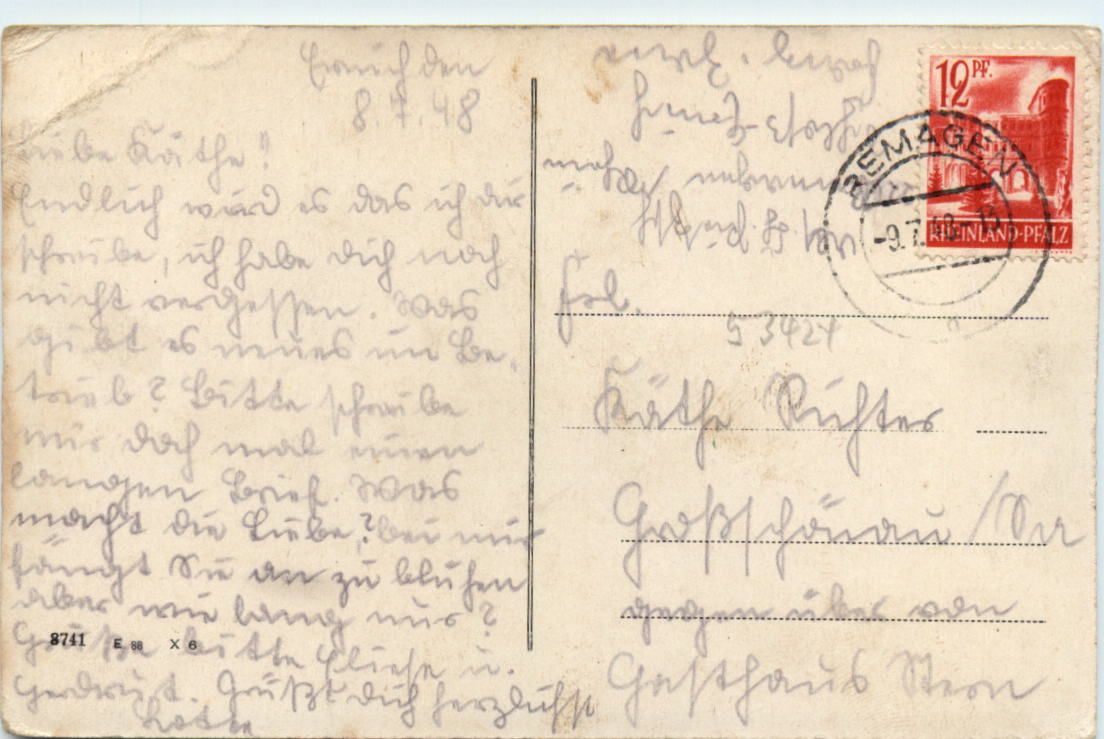 den
8.7.48
Liebe Käthe!
Endlich wird es das ich dir
schreibe, ich habe dich noch
nicht vergessen. Was
gibt es neues im Be-
trieb? Bitte schreibe
mir doch mal einen
langen Brief. Was
macht die Liebe,? bei mir
fängt Sie an zu blühen
aber wie lang nur?
Grüße bitte Eliese u.
Gerdrut. Grüßt dich herzlichst
Lotte
8741 E 88 X 6
12 PF.
RHEINLAND-PFALZ
REMAGEN
-9.7.48
Frl.
53424
Käthe Richter
Großschönau / Sa
gegen über von
Gasthaus Stern